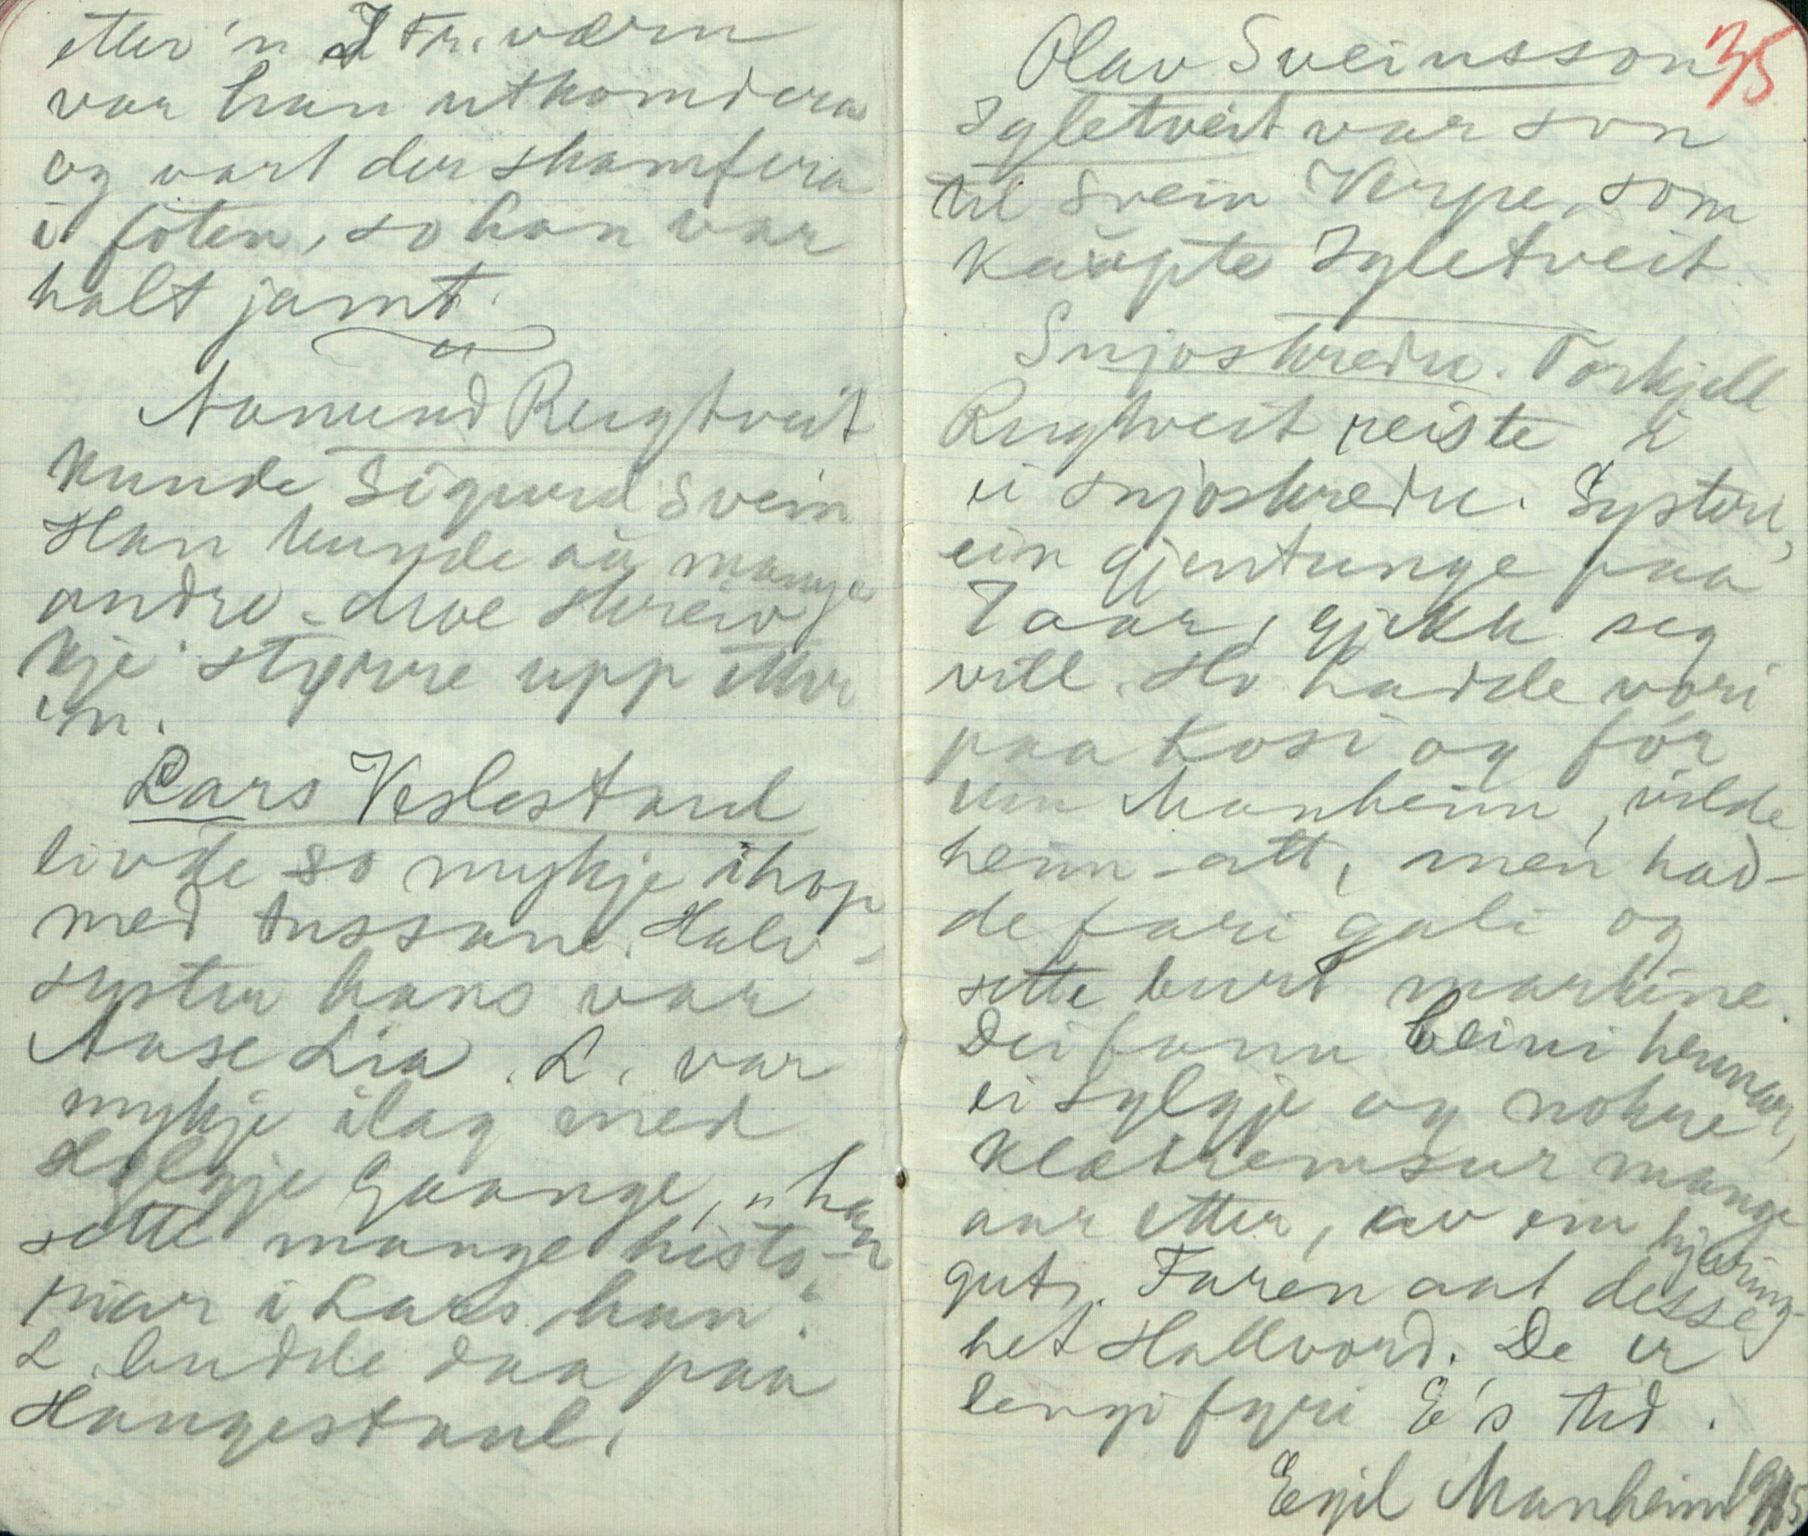 etter'n I Fr. værn
var han utkomdera
og vart der skamfera
i foten, so han var
halt jamt.
Aamund Rugtveit
kunde Sigurd Svein
Han kunde aa mange
andre - dræ skreiv
kje styrre upp etter
'n.
Lars Veslestaul
livde so mykje ihop
med tussane. Halv-
syster hans var
Aase Lia. L. var
mykje ilag med
Helgje Gaange, "han
sette mange histo-
riar i Lars han".
L. budde daa paa
Haugestaul.
35
Olav Sveinsson
Igletveit var son
til Svein Verpe, som
kaupte Igletveit.
Snjoskredu. Torkjell
Rugtveit reiste i
ei snjoskredu. Systeri,
ein gjentunge paa
7 aar, gjekk seg
vill. Ho hadde vori
paa Kosi og for
um Manheim, vilde
heim-att, men had-
de fari gali og
sette burt markine.
Dei fann beini hennar,
ei sylgje og nokre
klætremsur mange
aar etter, av ein hjuring-
gut. Faren aat desse
het Hallvord. De er
lengi fyri E's tid.
Egil Manheim 1915